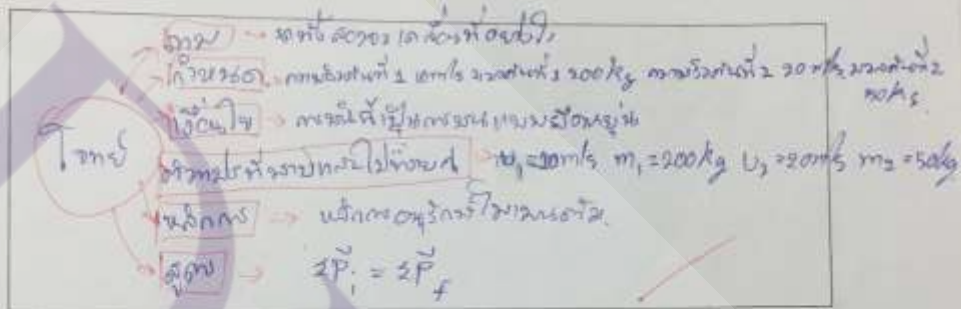 ถาม → รถทั้งสองจะเคลื่อนที่อย่างไร
กำหนด → ความเร็วคันที่ 1 10 m/s มวลคันที่ 1 200 kg ความเร็วคันที่ 2 20 m/s มวลคันที่ 2
50 kg
เงื่อนไข → การชนนี้เป็นการชนแบบยืดหยุ่น
โจทย์
ตัวแปรที่ทราบและไม่ทราบค่า → u₁ = 10 m/s m₁ = 200 kg u₂ = 20 m/s m₂ = 50 kg
หลักการ → หลักการอนุรักษ์โมเมนตัม
สูตร → ΣP⃗ᵢ = ΣP⃗_f